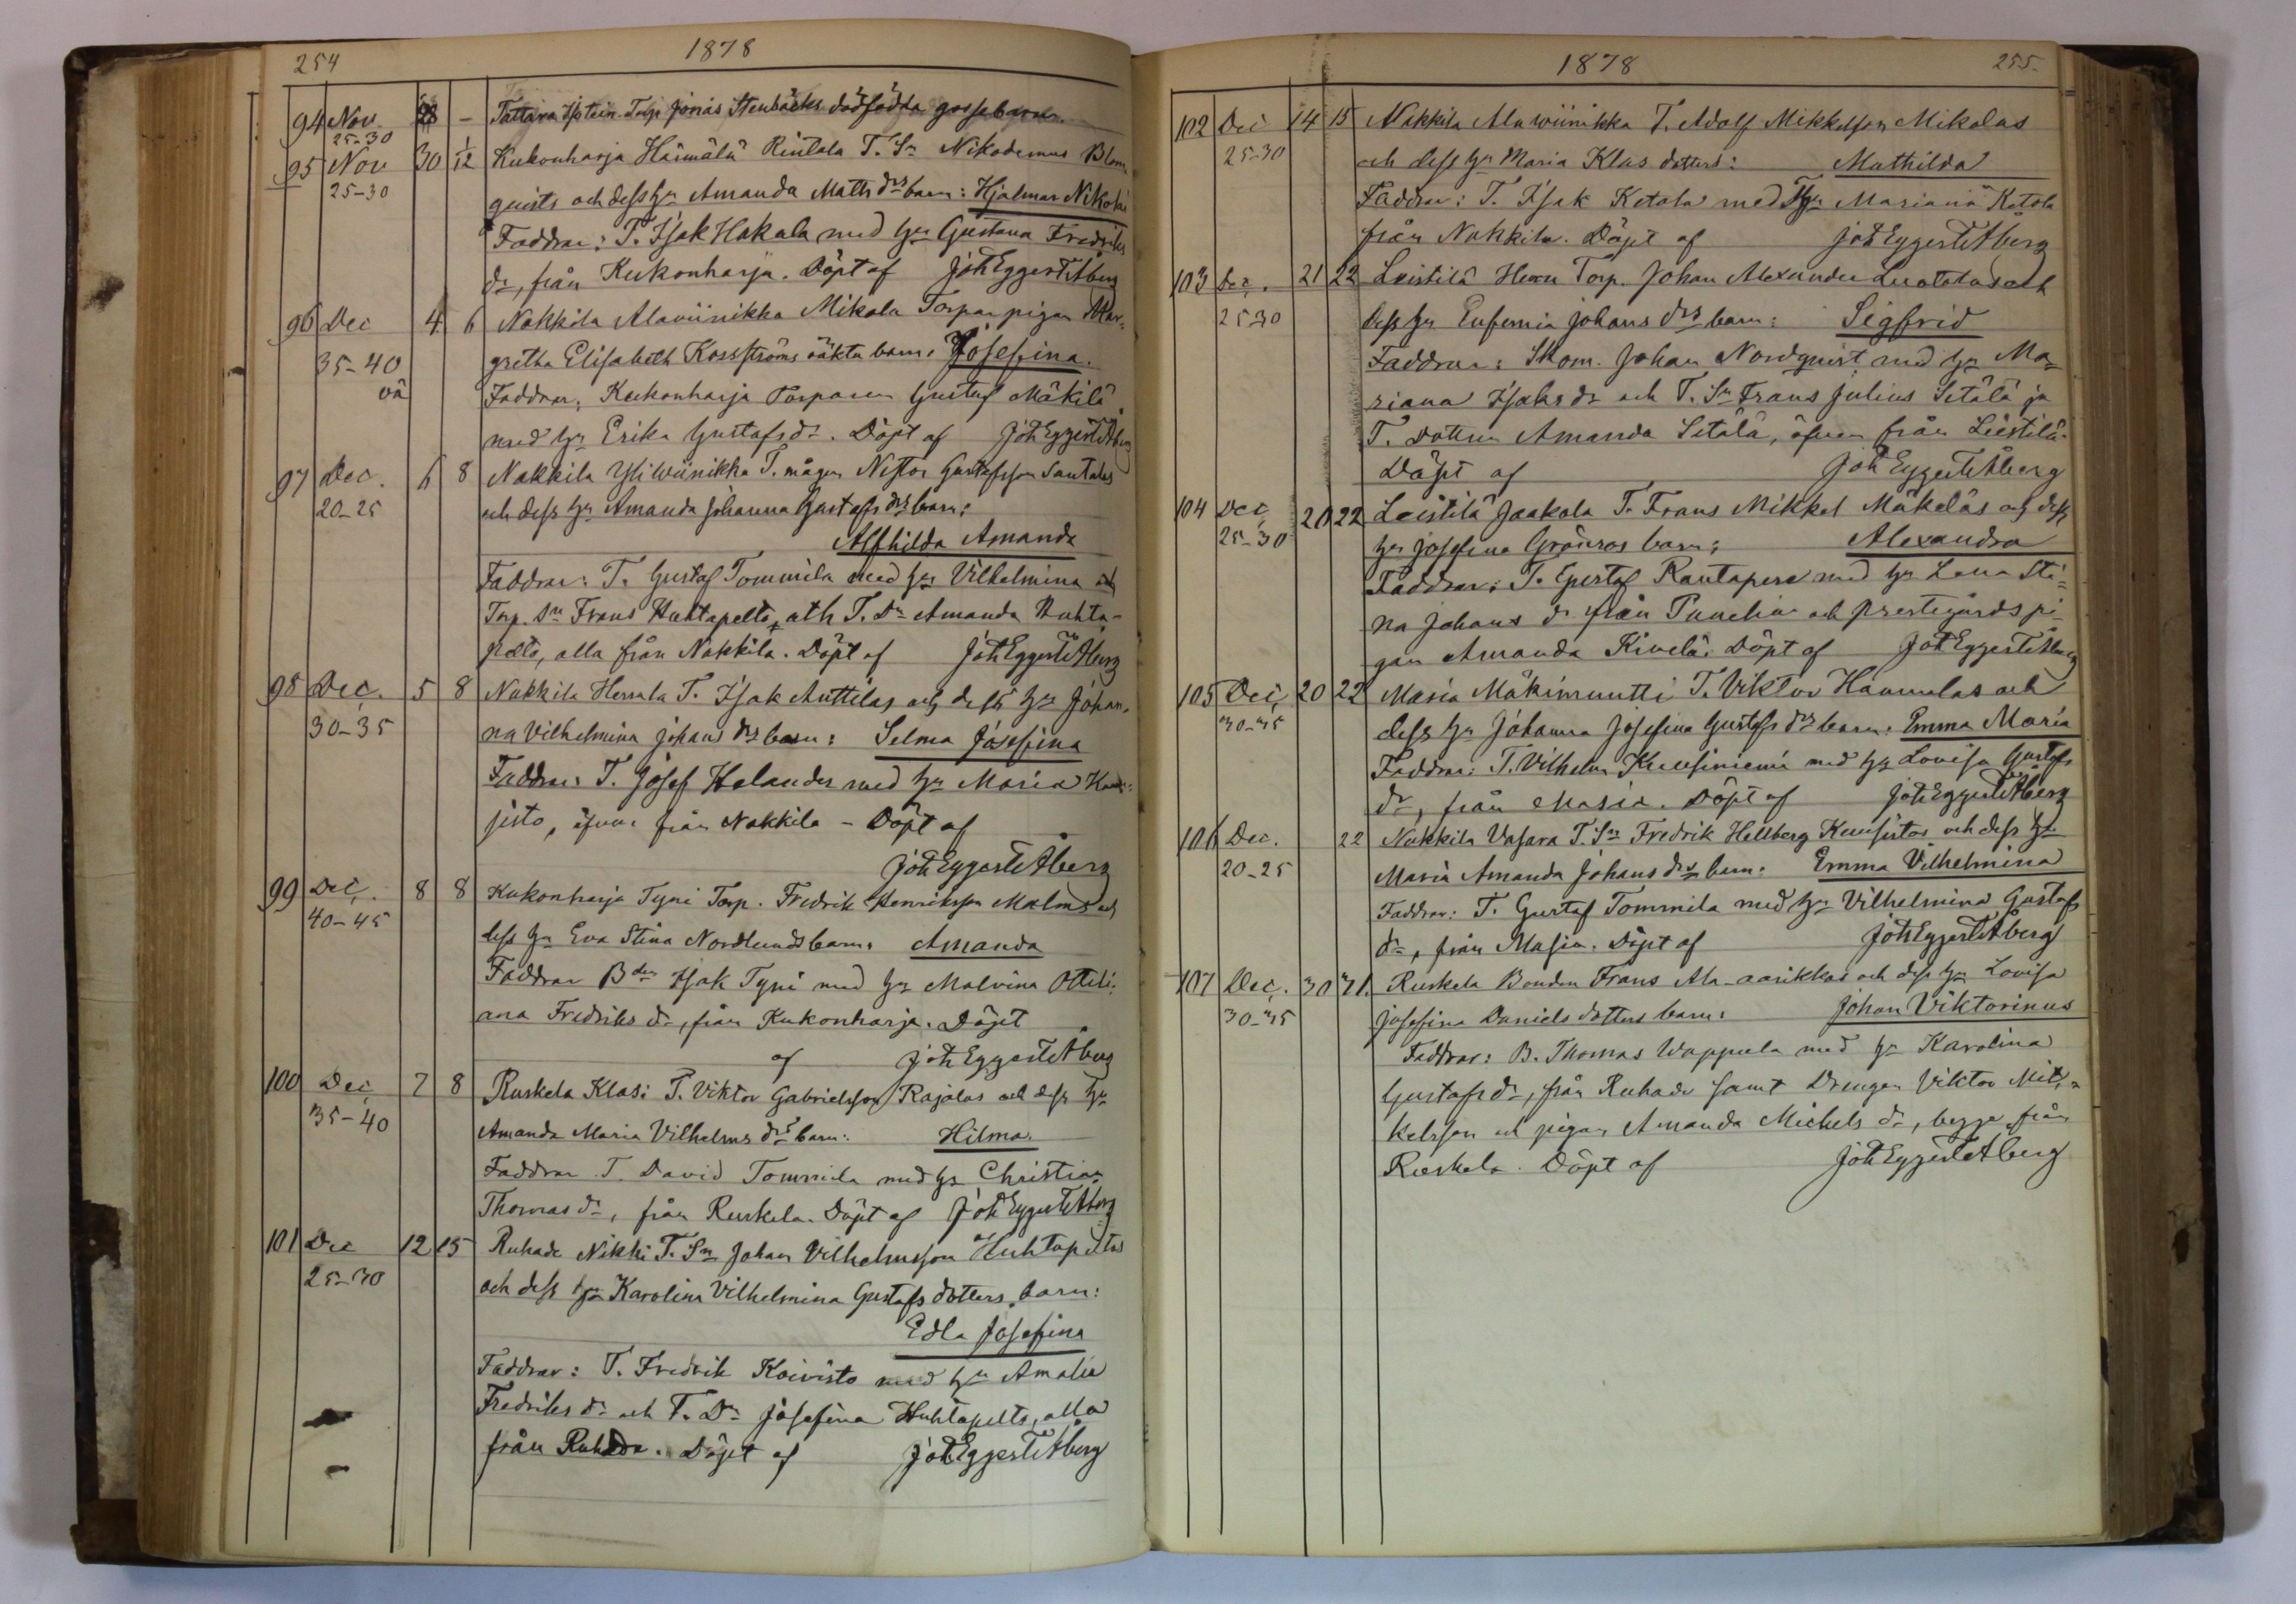 254
1878
94 Nov 28 – Tattara Torp Jonas Stenbäcks dödfödda gossebarn.
25-30
95 Nov 30 1/12 Kukonharja Häimälä Rintala T. Sn Nikodemus Blom
25-30 quists och dess hu Amanda Matts drs barn: Hjalmar Nikolai
Faddrar: T. Isak Hakala med hu Gustava Fredriks
dr, från Kukonharja. Döpt af Joh Eggert Åberg
96 Dec 4 6 Nakkila Alaviinikka Mikola Torpar pigan Mar-
35-40 gretha Elisabeth Kossströms oäkta barn: Josefina.
oä Faddrar: Kukonharja Torparen Gustaf Mäkilä
med hu Erika Gustafs dr. Döpt af Joh Eggert Åberg
97 Dec. 6 8 Nakkila Yliwiinikka T. mågen Nestor Gustafsson Santalas
20-25 och dess hu Amanda Johanna Gustafs drs barn:
Alfhilda Amanda
Faddrar: T. Gustaf Tommila med hu Vilhelmina och
Torp. Sn Frans Huhtapelto, och T. Dr Amanda Huhta-
pelto, alla från Nakkila. Döpt af Joh Eggert Åberg
98 Dec. 5 8 Nakkila Herrala T. Isak Anttilas och dess hu Johan-
30-35 na Vilhelmina Johans drs barn: Selma Josefina
Faddrar T. Josef Helander med hu Maria
jisto, äfven från Nakkila – Döpt af
Joh Eggert Åberg
99 Dec. 8 8 Kukonharja Tyni Torp. Fredrik Henriksson Malms och
40-45 dess hu Eva Stina Nordlunds barn: Amanda
Faddrar Bden Isak Tyni med hu Malvina Otteli-
ana Fredriks dr, från Kukonharja. Döpt
af Joh Eggert Åberg
100 Dec 7 8 Ruskela Klasi T. Viktor Gabrielsson Rajalas och dess hu
35-40 Amanda Maria Vilhelms drs barn: Hilma.
Faddrar T. David Tommila med hu Christina
Thomas dr, från Ruskela. Döpt af Joh Eggert Åberg
101 Dec 12 15 Ruhade Nikki T. Sn Johan Vilhelmsson Huhtapeltos
25-30 och dess hu Karolina Vilhelmina Gustafs dotters barn:
Edla Josefina
Faddrar: T. Fredrik Koivisto med hu Amalia
Fredriks dr och T. Dr Josefina Huhtapelto, alla
från Ruhade. Döpt af Joh Eggert Åberg
1878
255.
102 Dec 14 15 Nakkila Alawiinikka T. Adolf Mikkelsson Mikolas
25-30 och dess hu Maria Klas dotters: Mathilda
Faddrar: T. Isak Ketola med hu Mariana Ketola
från Nakkila. Döpt af Joh Eggert Åberg
103 Dec. 21 22 Leistilä Herra Torp. Johan Alexander Luototas och
25-30 dess hu Eufemia Johans drs barn: Sigfrid
Faddrar: Skom. Johan Nordquist med hu Ma-
riana Isaks dr och T. Sn Frans Julius Setälä ja
T. Dottern Amanda Setälä, äfven från Leistilä.
Döpt af Joh Eggert Åberg
104 Dec, 20 22 Leistilä Jaakola T. Frans Mikkel Mäkeläs och dess
25-30 hu Josefina Grönroos barn: Alexandra
Faddrar: T. Gustaf Rantapere med hu Lena Sti-
na Johans dr från Punelia och prestegårdspi-
gan Amanda Kivelä. Döpt af Joh Eggert Åberg
105 Dec, 20 22 Masia Mäkimuntti T. Viktor Hannulas och
30-35 dess hu Johanna Josefina Gustafs drs barn: Emma Maria
Faddrar: T. Vilhelm Kuusiniemi med hu Lovisa Gustafs
dr, från Masia. Döpt af Joh Eggert Åberg
106 Dec. 22 Nakkila Vasara T. Sn Fredrik Hellberg Kuusistos och dess hu
20-25 Maria Amanda Johans drs barn: Emma Vilhelmina
Faddrar: T. Gustaf Tommila med hu Vilhelmina Gustafs
dr, från Masia. Döpt af Joh Eggert Åberg
107 Dec. 30 31. Ruskela Bonden Frans Ala-aarikkas och dess hu Lovisa
30-35 Josefina Daniels dotters barn: Johan Viktorinus
Faddrar: B. Thomas Wappula med hu Karolina
Gustafs dr, från Ruhade samt Drengen Viktor Mik-
kelsson och pigan Amanda Michels dr, begge från
Ruskela. Döpt af Joh Eggert Åberg